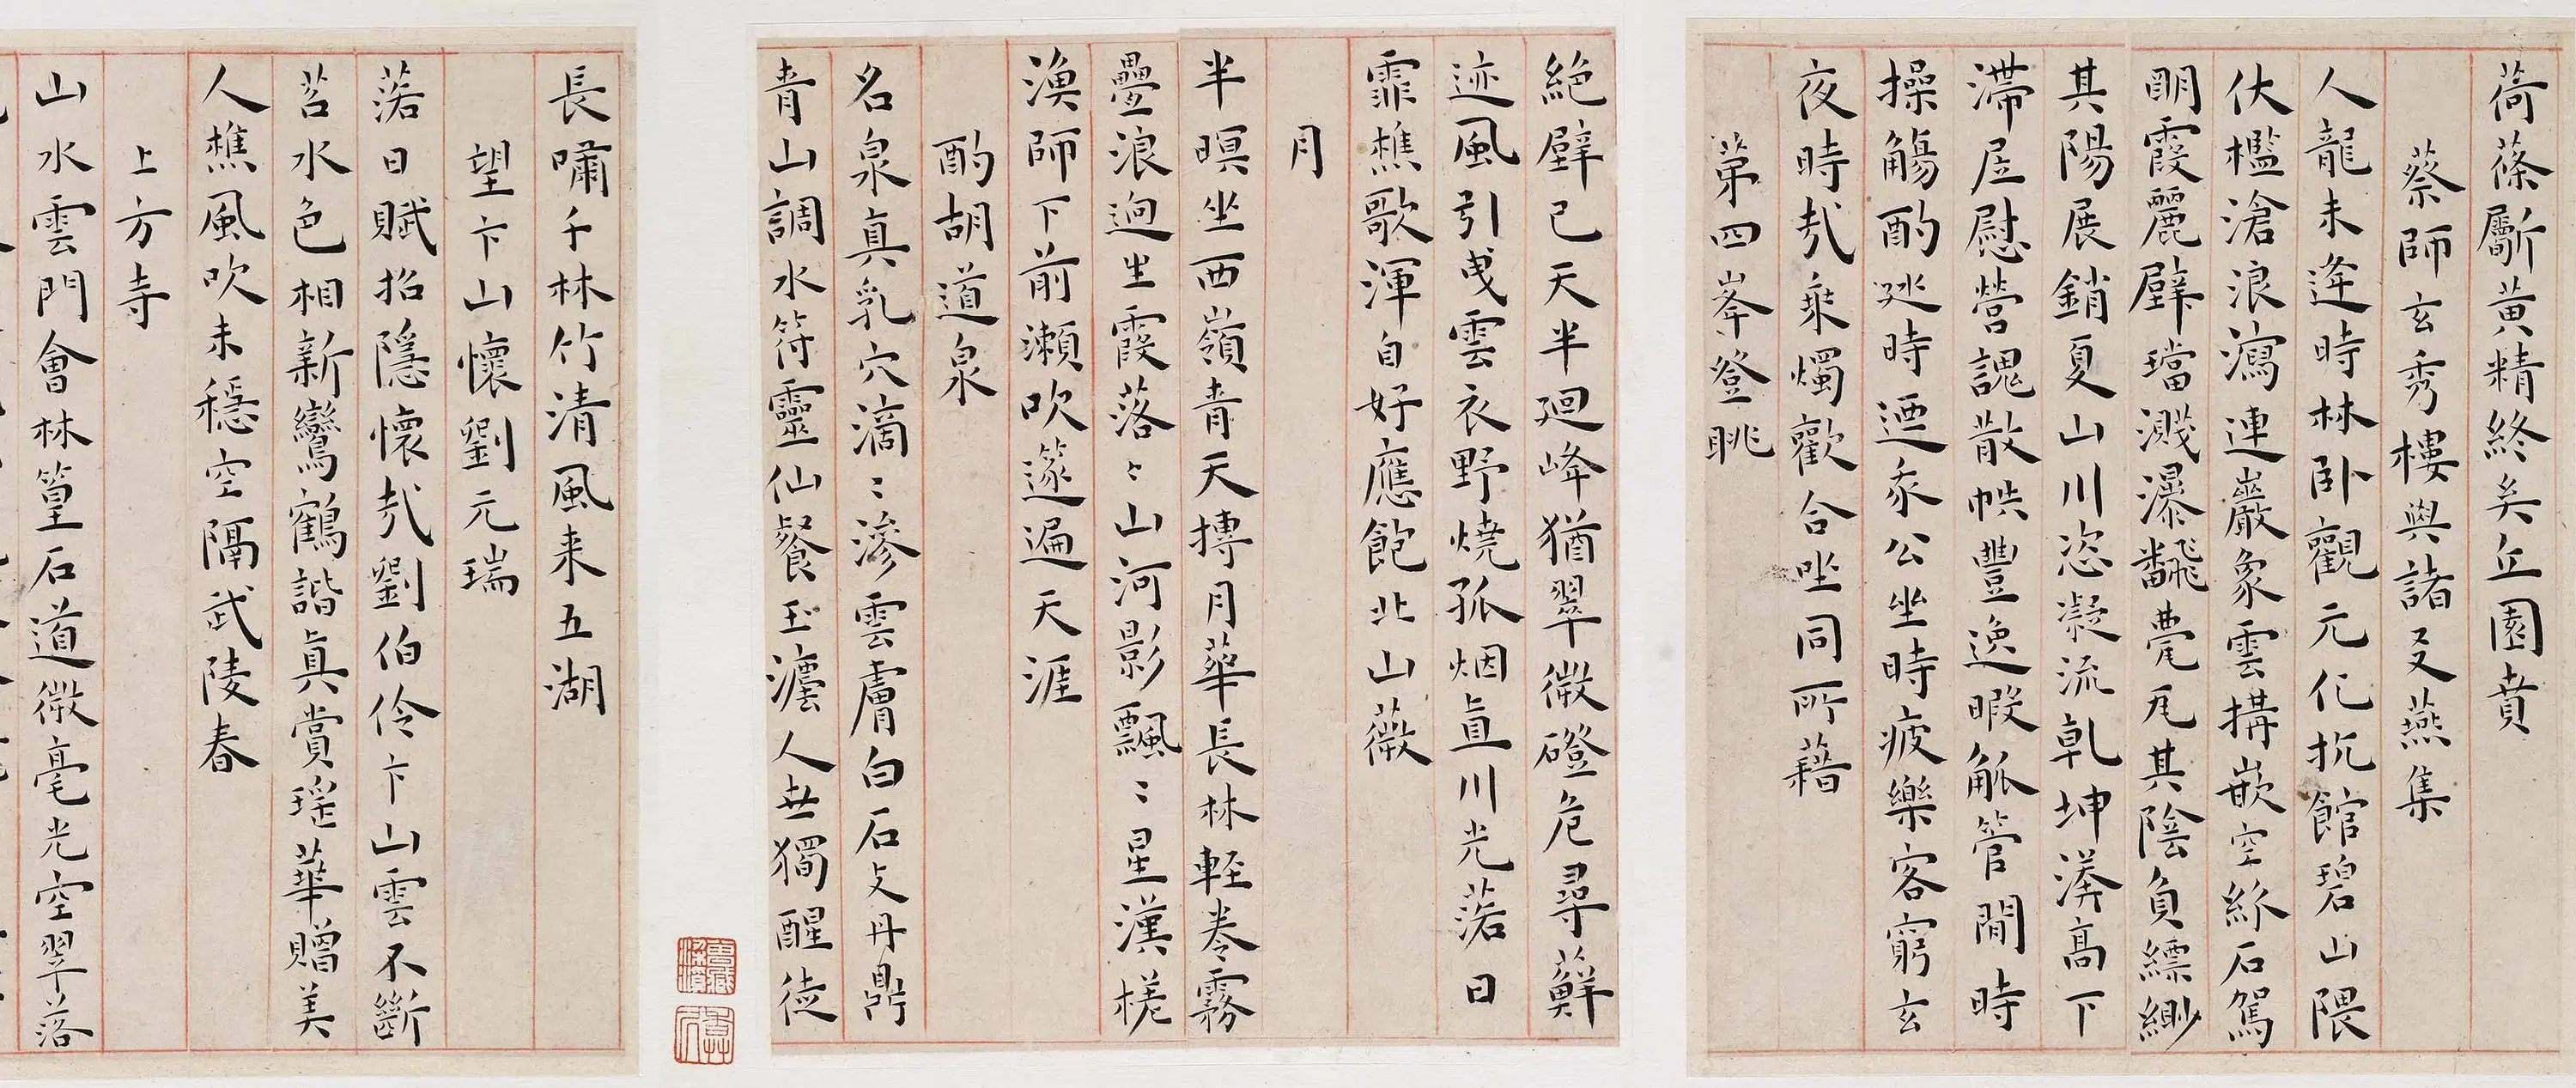 荷蓧斸黃精終矣丘園賁
蔡師玄秀樓與諸友燕集
人龍未逢時林臥觀元化抗館碧山隈
伏檻滄浪瀉連巖象雲搆嵌空絲石駕
朙霞麗壁璫濺瀑飜甍瓦其陰負縹緲
其陽展銷夏山川恣凝流乹坤漭高下
滯居慰營諰散帙豐逸暇觚管間時
操觴酌延時迺豖公坐時疲樂客窮玄
夜時㢤乘燭歡合坐同所藉
第四峯登眺
絕壁已天半廻峰猶翠微磴危尋蘚
迹風引曵雲衣野燒孤烟直川光落日
霏樵歌渾自好應飽北山薇
月
半暝坐西嶺青天摶月華長林輕卷霧
疊浪迥生霞落〻山河影飄〻星漢槎
漁師下前瀨吹篴遍天涯
酌胡道泉
名泉真乳穴滴〻滲雲膚白石支丹鼎
青山調水符靈仙餐玉瀣人世獨醒徒
長嘯千林竹清風来五湖
望卞山懷劉元瑞
落日賦招隱懷㢤劉伯伶卞山雲不斷
苕水色相新鸞鶴諧真賞瑤華贈美
人樵風吹未穩空隔武陵春
上方寺
山水雲門會林篁石道微毫光空翠落